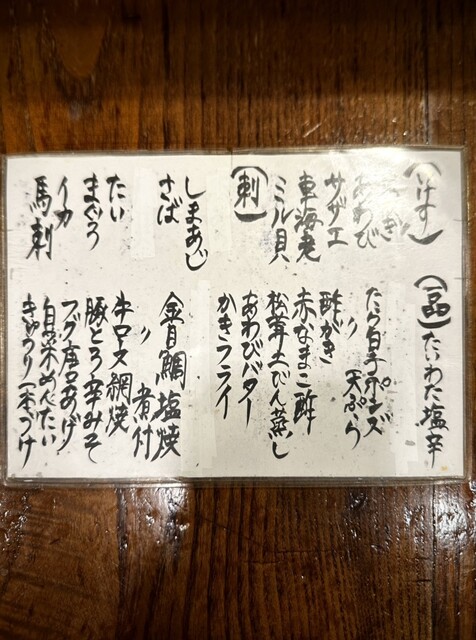 (いけす)
あわび
サザエ
車海老
ミル貝
(刺)
しまあじ
さば
たい
まぐろ
イカ
馬刺
(一品)
たいわた塩辛
たら白子ポンズ
〃 天ぷら
酢がき
赤なまこ酢
松茸土びん蒸し
あわびバター
かきフライ
金目鯛塩焼
〃 煮付
牛ロース網焼
豚とろ辛みそ
フグ唐あげ
めんたい
きゅうり一本づけ